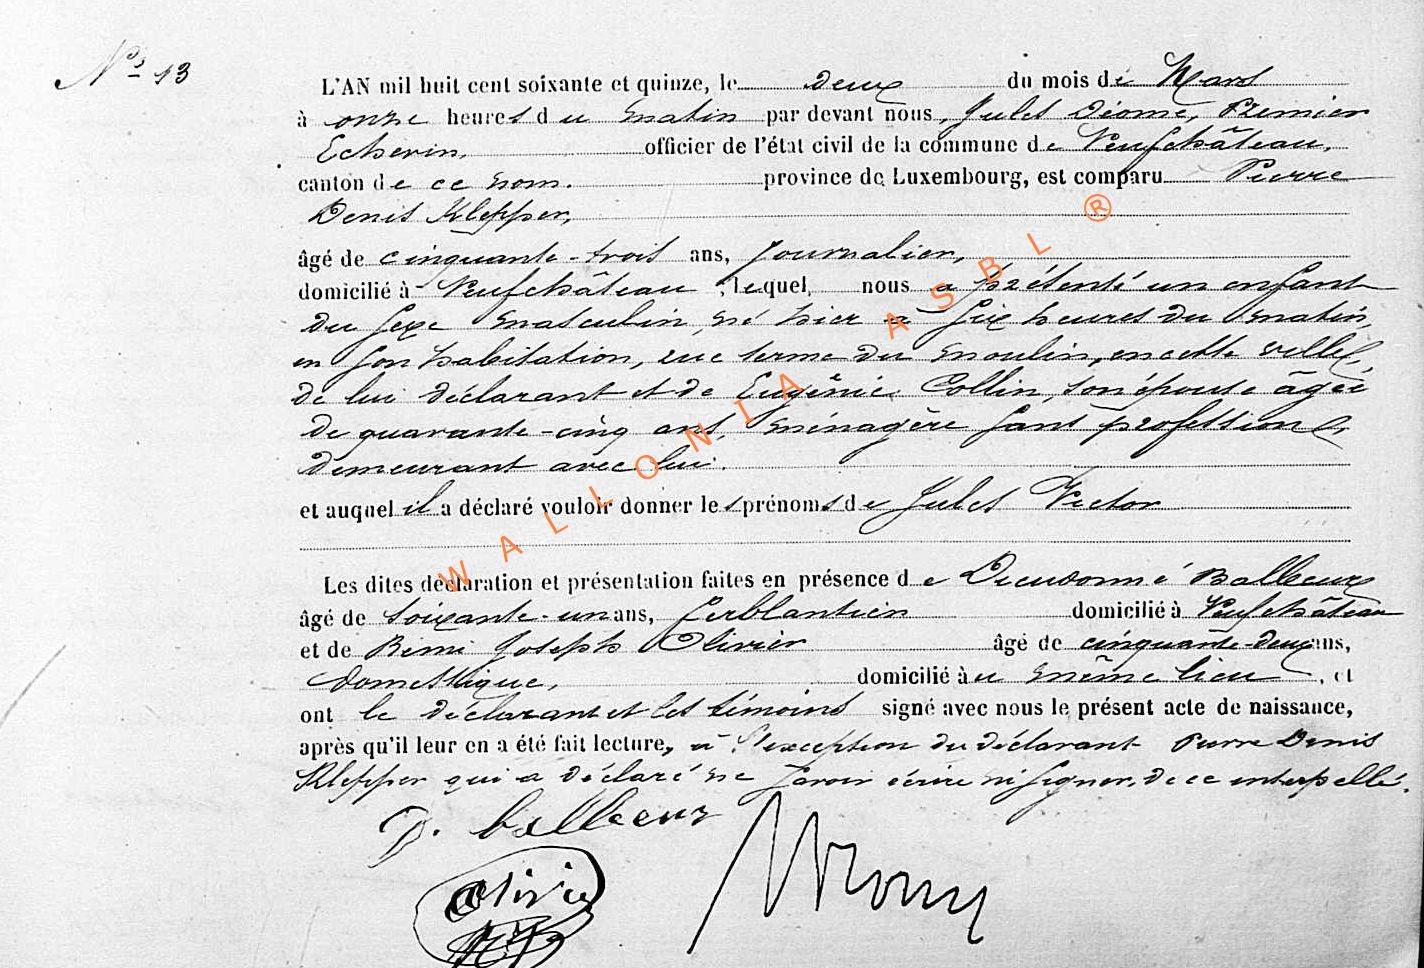 N° 13
L'AN mil huit cent soixante et quinze, le deux du mois de Mars
à onze heures du matin par devant nous, Jules Diome, Premier
Echevin, officier de l'état civil de la commune de Neufchâteau,
canton de ce nom. province de Luxembourg, est comparu Pierre
Denis Klepper,
âgé de cinquante-trois ans, Journalier,
domicilié à Neufchâteau, lequel nous a présenté un enfant
du sexe masculin, né hier à six heures du matin,
en son habitation, rue terme du moulin, en cette ville,
de lui déclarant et de Eugénie Collin, son épouse âgée
de quarante-cinq ans, ménagère sans profession
demeurant avec lui.
et auquel il a déclaré vouloir donner les prénoms de Jules Victor
Les dites déclaration et présentation faites en présence de Dieudonné Balleeux
âgé de soixante-un ans, ferblantier domicilié à Neufchâteau
et de Remi Joseph Olivier âgé de cinquante-deux ans,
domestique, domicilié au même lieu, et
ont le déclarant et les témoins signé avec nous le présent acte de naissance,
après qu'il leur en a été fait lecture, à l'exception du déclarant Pierre Denis
Klepper qui a déclaré ne savoir écrire ni signer, de ce interpellé.
D. balleeux
Olivier
WALLONIA ASBL ®